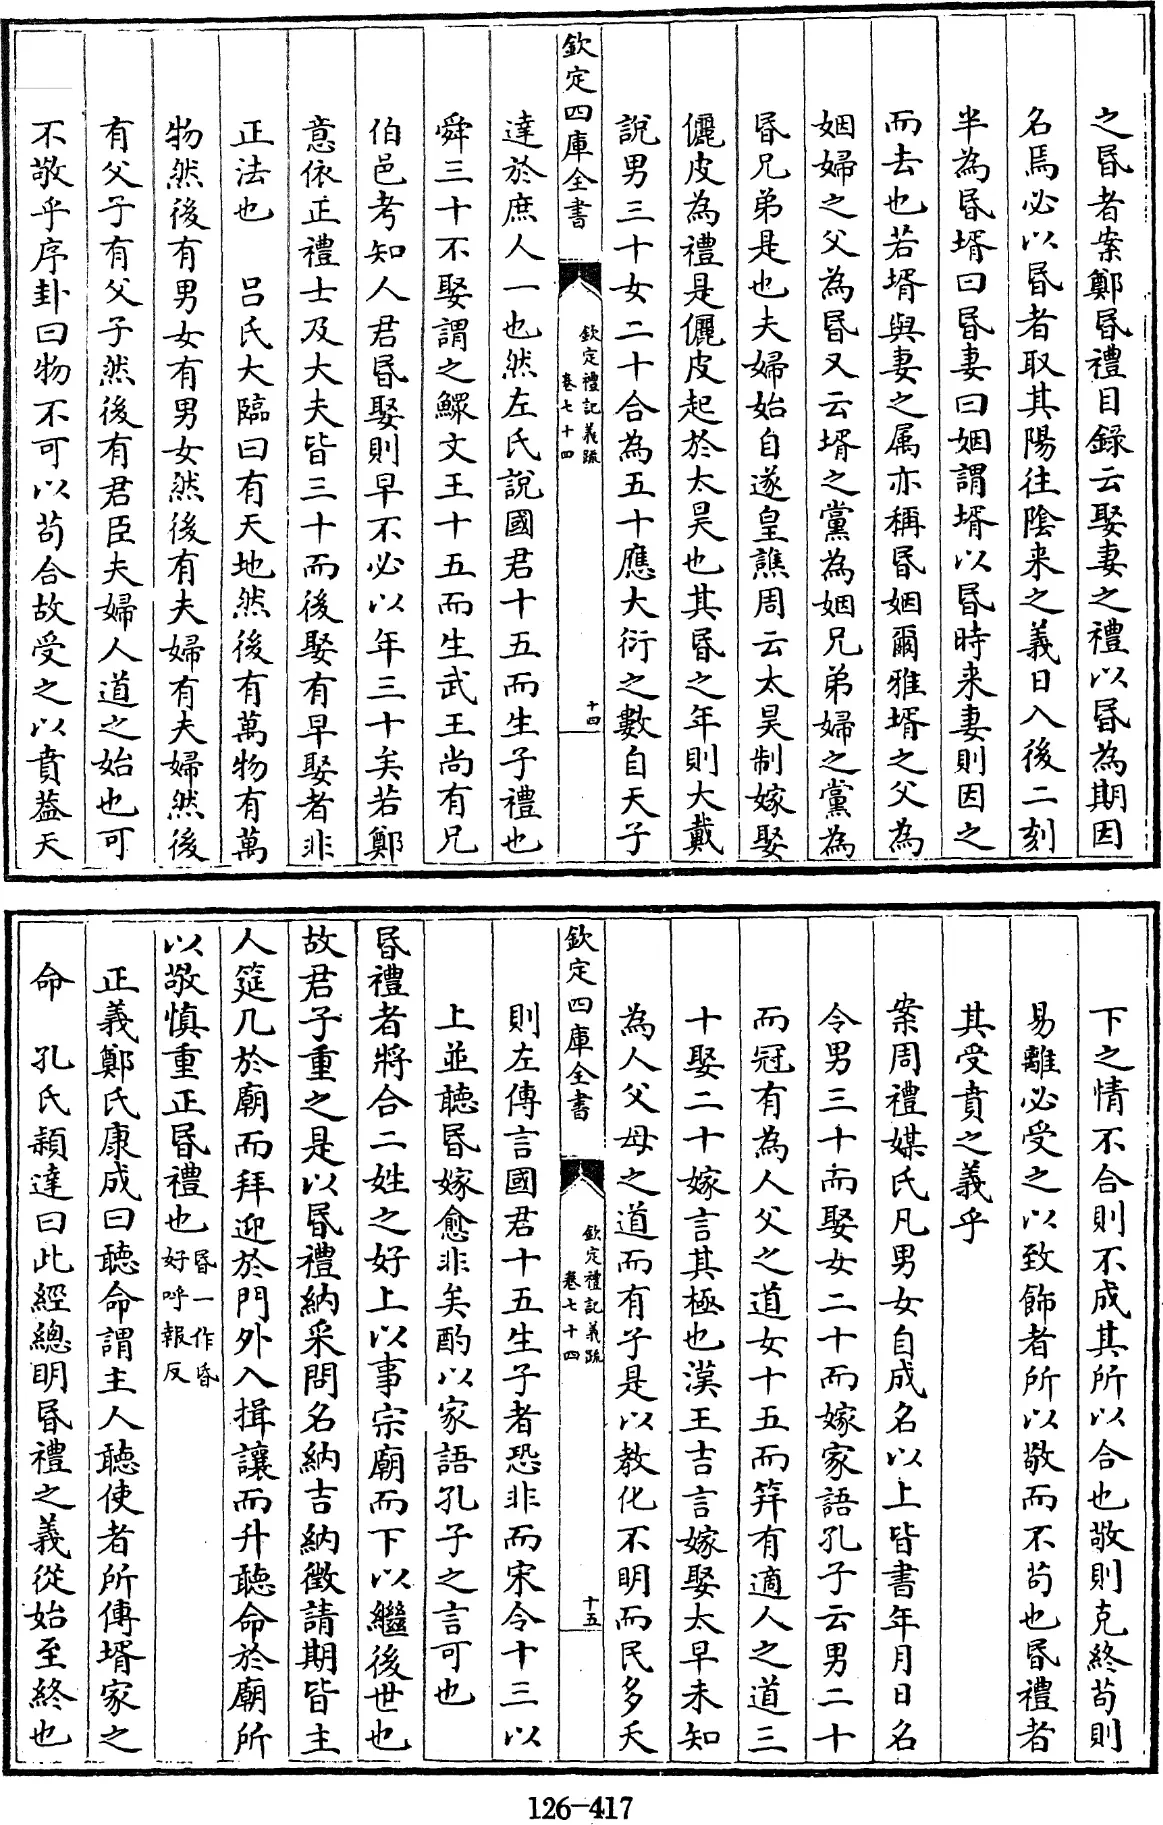 之昬者案鄭昬禮目録云娶妻之禮以昬為期因
名焉必以昬者取其陽往隂来之義日入後二刻
半為昬壻曰昬妻曰姻謂壻以昬時来妻則因之
而去也若壻與妻之属亦稱昬姻爾雅壻之父為
姻婦之父為昬又云壻之黨為姻兄弟婦之黨為
昬兄弟是也夫婦始自遂皇譙周云太昊制嫁娶
儷皮為禮是儷皮起於太昊也其昬之年則大戴
說男三十女二十合為五十應大衍之數自天子
欽定四庫全書
欽定禮記義疏
卷七十四
十四
達於庶人一也然左氏說國君十五而生子禮也
舜三十不娶謂之鰥文王十五而生武王尚有兄
伯邑考知人君昬娶則早不必以年三十矣若鄭
意依正禮士及大夫皆三十而後娶有早娶者非
正法也　吕氏大臨曰有天地然後有萬物有萬
物然後有男女有男女然後有夫婦有夫婦然後
有父子有父子然後有君臣夫婦人道之始也可
不敬乎序卦曰物不可以茍合故受之以賁葢天
下之情不合則不成其所以合也敬則克終茍則
易離必受之以致飾者所以敬而不茍也昬禮者
其受賁之義乎
案周禮媒氏凡男女自成名以上皆書年月日名
令男三十而娶女二十而嫁家語孔子云男二十
而冠有為人父之道女十五而筓有適人之道三
十娶二十嫁言其極也漢王吉言嫁娶太早未知
為人父母之道而有子是以教化不明而民多夭
欽定四庫全書
欽定禮記義疏
卷七十四
十五
則左傳言國君十五生子者恐非而宋令十三以
上並聽昬嫁愈非矣酌以家語孔子之言可也
昬禮者將合二姓之好上以事宗廟而下以繼後世也
故君子重之是以昬禮納采問名納吉納徵請期皆主
人筵几於廟而拜迎於門外入揖讓而升聽命於廟所
以敬慎重正昬禮也昬一作昏
好呼報反
正義鄭氏康成曰聽命謂主人聽使者所傳壻家之
命　孔氏穎達曰此經總明昬禮之義從始至終也
126-417